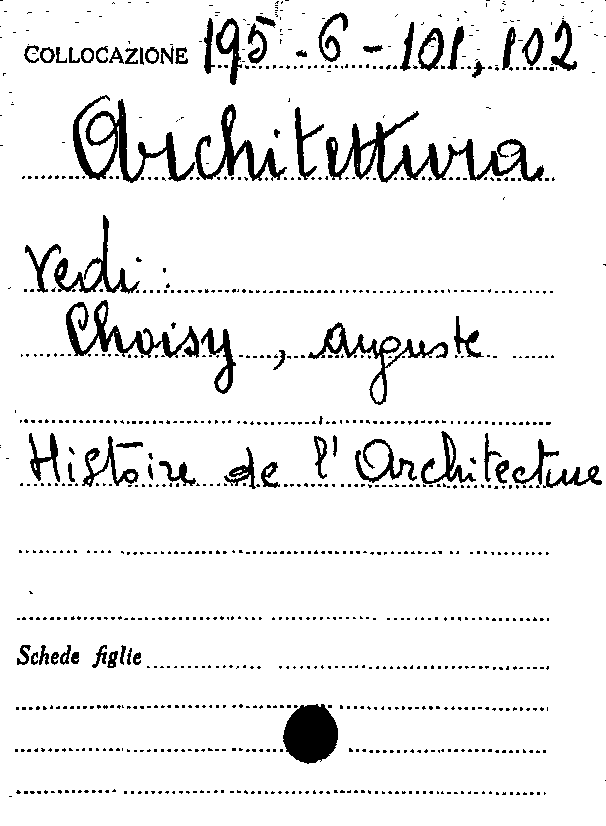 COLLOCAZIONE 195-6-101,102
Architettura
Vedi:
Choisy, Auguste
Histoire de l'Architecture
Schede figlie